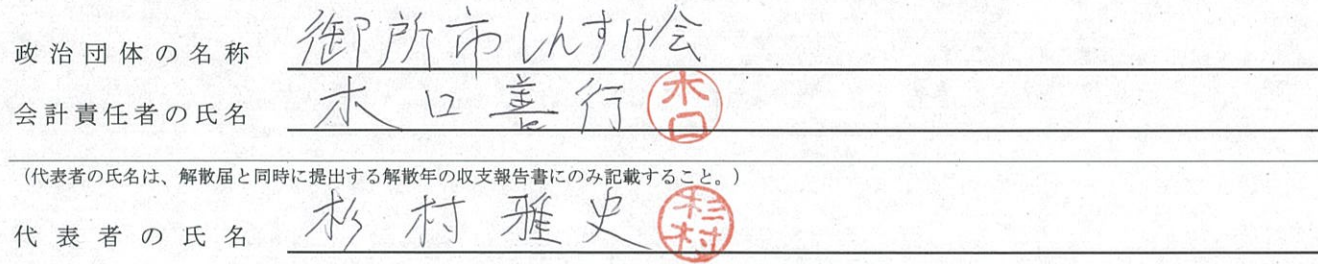 政治団体の名称 御所市しんすけ会
会計責任者の氏名 木口善行 木口
(代表者の氏名は、解散届と同時に提出する解散年の収支報告書にのみ記載すること。)
代表者の氏名 杉村雅史 杉村